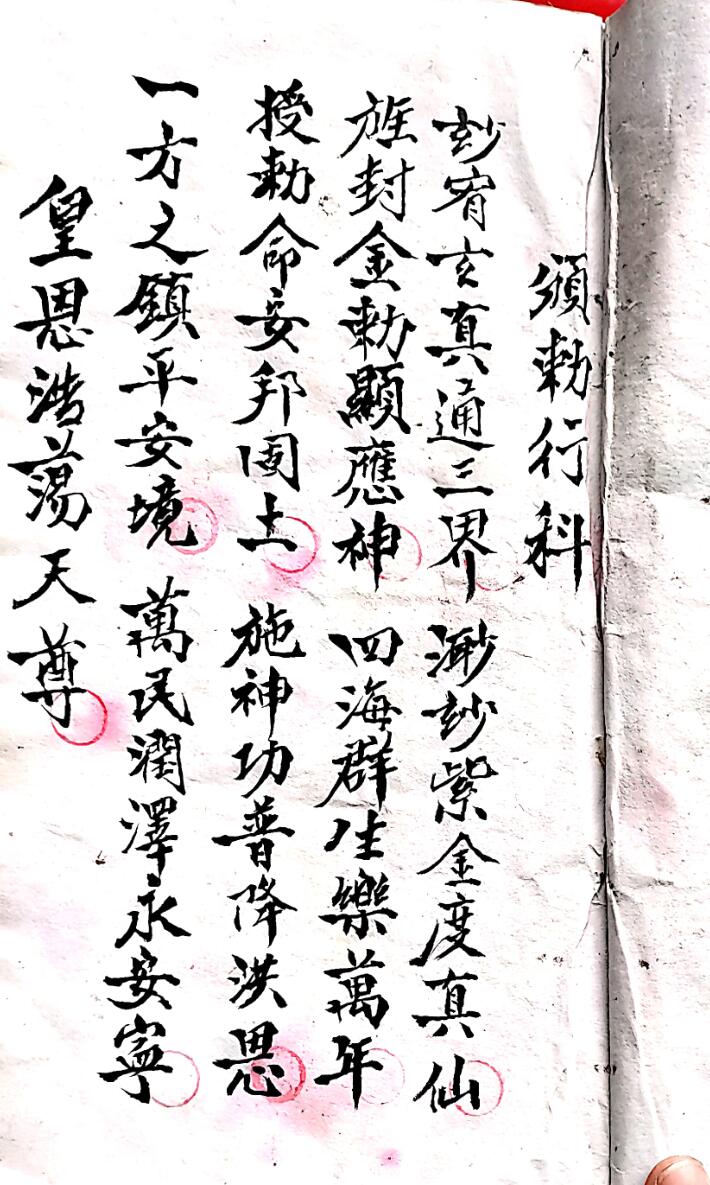 頒勅行科
玅宵玄真通三界 渺玅紫金度真仙
旌封金勅顯應神 四海群生樂萬年
授勅命安邦固土 施神功普降洪恩
一方之鎮平安境 萬民潤澤永安寧
皇恩浩蕩天尊